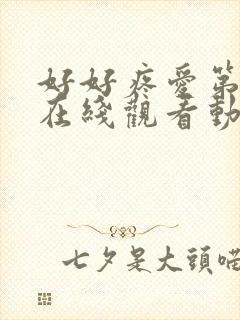 好好疼愛第
在綫觀看動
七夕是大頭喵